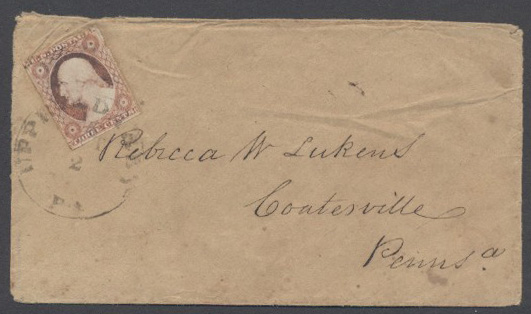 U.S. POSTAGE
THREE CENTS
2
PA
Rebecca W Lukens
Coatesville
Penns.a